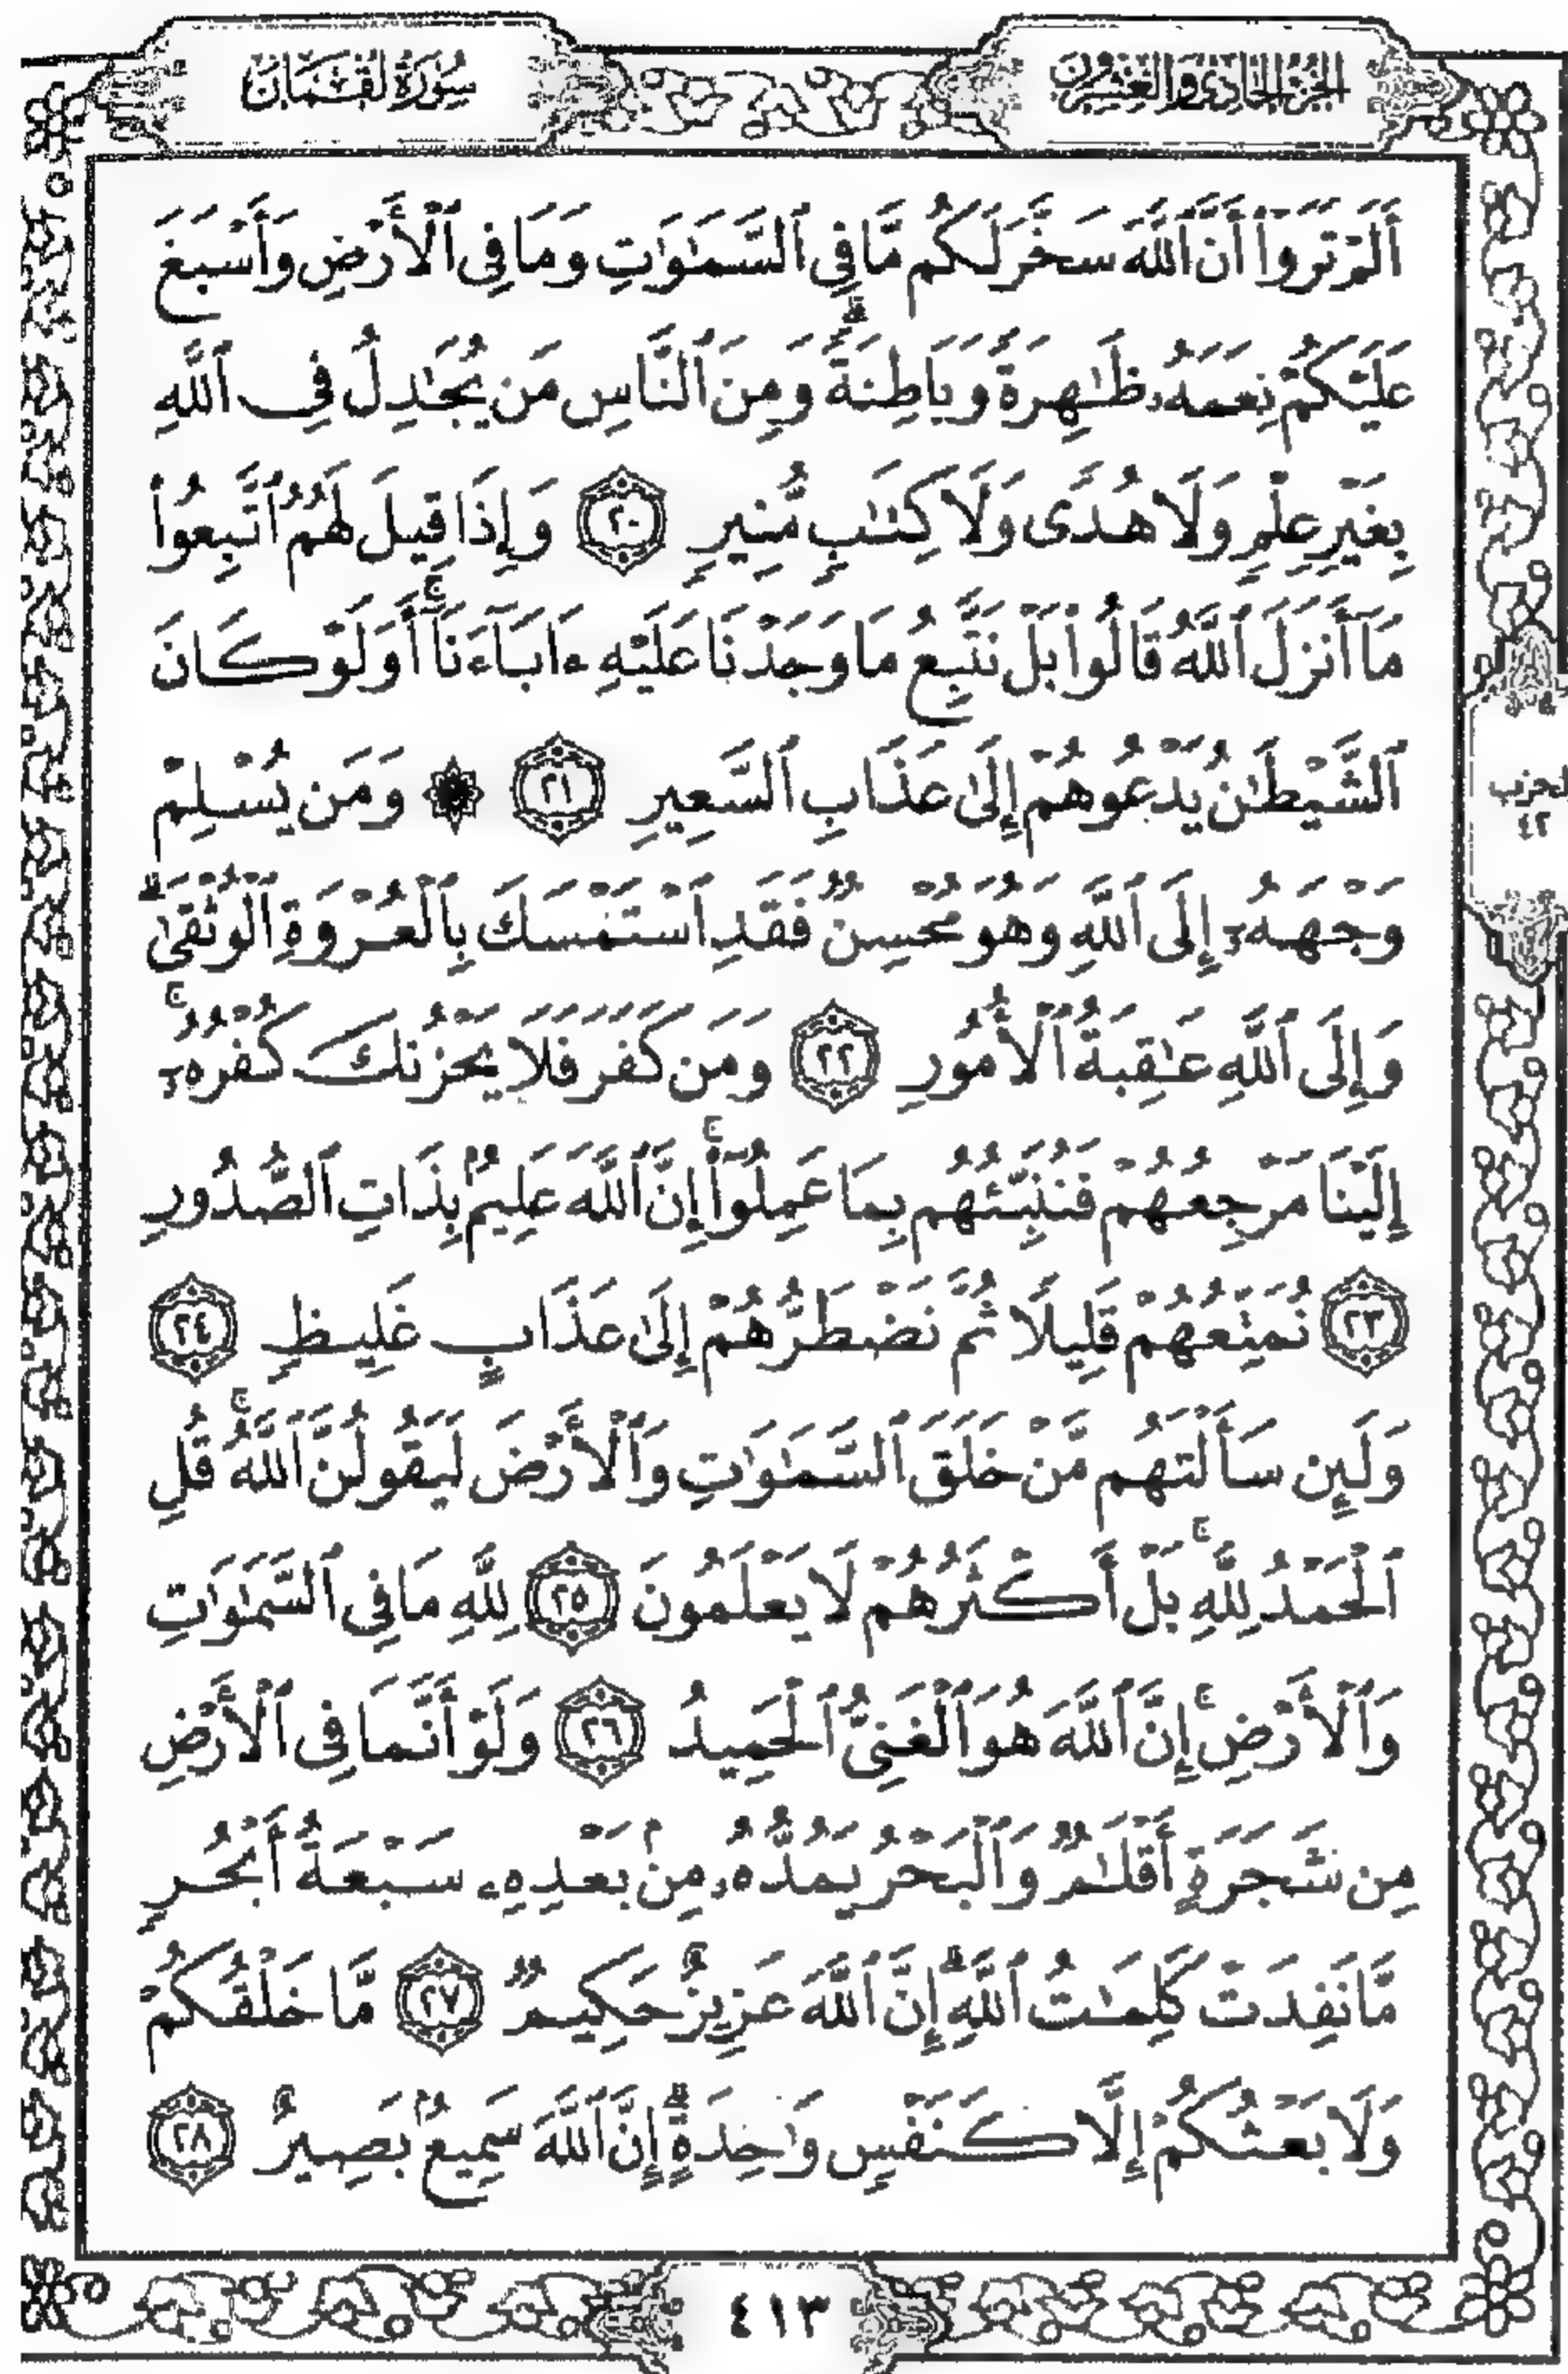 الجزء الحادي والعشرون
سُورَةُ لُقْمَان
أَلَمْ تَرَوْا۟ أَنَّ ٱللَّهَ سَخَّرَ لَكُم مَّا فِى ٱلسَّمَـٰوَٰتِ وَمَا فِى ٱلْأَرْضِ وَأَسْبَغَ
عَلَيْكُمْ نِعَمَهُۥ ظَـٰهِرَةً وَبَاطِنَةً ۗ وَمِنَ ٱلنَّاسِ مَن يُجَـٰدِلُ فِى ٱللَّهِ
بِغَيْرِ عِلْمٍ وَلَا هُدًى وَلَا كِتَـٰبٍ مُّنِيرٍ ٢٠ وَإِذَا قِيلَ لَهُمُ ٱتَّبِعُوا۟
مَآ أَنزَلَ ٱللَّهُ قَالُوا۟ بَلْ نَتَّبِعُ مَا وَجَدْنَا عَلَيْهِ ءَابَآءَنَآ ۚ أَوَلَوْ كَانَ
ٱلشَّيْطَـٰنُ يَدْعُوهُمْ إِلَىٰ عَذَابِ ٱلسَّعِيرِ ٢١ ۞ وَمَن يُسْلِمْ
وَجْهَهُۥٓ إِلَى ٱللَّهِ وَهُوَ مُحْسِنٌ فَقَدِ ٱسْتَمْسَكَ بِٱلْعُرْوَةِ ٱلْوُثْقَىٰ ۗ
وَإِلَى ٱللَّهِ عَـٰقِبَةُ ٱلْأُمُورِ ٢٢ وَمَن كَفَرَ فَلَا يَحْزُنكَ كُفْرُهُۥٓ ۚ
إِلَيْنَا مَرْجِعُهُمْ فَنُنَبِّئُهُم بِمَا عَمِلُوٓا۟ ۚ إِنَّ ٱللَّهَ عَلِيمٌۢ بِذَاتِ ٱلصُّدُورِ
٢٣ نُمَتِّعُهُمْ قَلِيلًا ثُمَّ نَضْطَرُّهُمْ إِلَىٰ عَذَابٍ غَلِيظٍ ٢٤
وَلَئِن سَأَلْتَهُم مَّنْ خَلَقَ ٱلسَّمَـٰوَٰتِ وَٱلْأَرْضَ لَيَقُولُنَّ ٱللَّهُ ۚ قُلِ
ٱلْحَمْدُ لِلَّهِ ۚ بَلْ أَكْثَرُهُمْ لَا يَعْلَمُونَ ٢٥ لِلَّهِ مَا فِى ٱلسَّمَـٰوَٰتِ
وَٱلْأَرْضِ ۚ إِنَّ ٱللَّهَ هُوَ ٱلْغَنِىُّ ٱلْحَمِيدُ ٢٦ وَلَوْ أَنَّمَا فِى ٱلْأَرْضِ
مِن شَجَرَةٍ أَقْلَـٰمٌ وَٱلْبَحْرُ يَمُدُّهُۥ مِنۢ بَعْدِهِۦ سَبْعَةُ أَبْحُرٍ
مَّا نَفِدَتْ كَلِمَـٰتُ ٱللَّهِ ۗ إِنَّ ٱللَّهَ عَزِيزٌ حَكِيمٌ ٢٧ مَّا خَلْقُكُمْ
وَلَا بَعْثُكُمْ إِلَّا كَنَفْسٍ وَٰحِدَةٍ ۗ إِنَّ ٱللَّهَ سَمِيعٌۢ بَصِيرٌ ٢٨
الحزب
٤٢
٤١٣